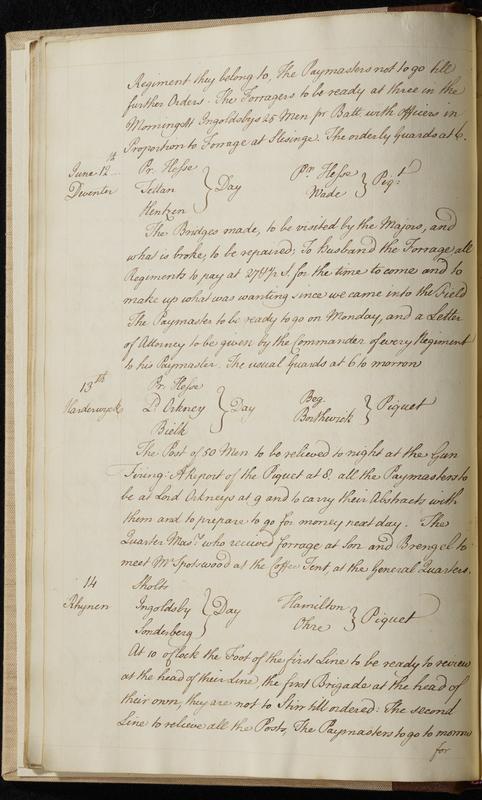 Regiment they belong to, The Paymasters not to go till
further Orders. The Forragers to be ready at three in the
Morning Ingoldsbys 25 Men pr Batt. with Officers in
Proportion to Forrage at Slesinge. The orderly Guards at 6.
June 12th Pr. Hesse
Deventer Tettau } Day Pr. Hesse Wade } Piqt
Hentzen
The Bridges made, to be visited by the Majors, and
what is broke, to be repaired; To Husband the Forrage all
Regiments to pay at for the time to come and to
make up what was wanting since we came into the Field
The Paymaster to be ready to go on Monday, and a Letter
of Attorney to be given by the Commander of every Regiment
to his Paymaster. The usual Guards at 6 to morrow
13th Pr. Hesse
Harderwyck Ld. Orkney } Day Beg. Borthwick } Piquet
Bielk
The Post of 50 Men to be relieved to night at the Gun
Firing: A Report of the Piquet at 8. all the Paymasters to
be at Lord Orkneys at 9 and to carry their Abstracts with
them and to prepare to go for money next day. The
Quarter Masrs. who received forrage at Son and Brengel to
meet Mr Spotswood at the Coffee Tent, at the General Quarters.
14 Sholts
Rhynen Ingoldsby } Day Hamilton Ohre } Piquet
Sonderberg
At 10 o'Clock the Foot of the first Line to be ready to review
at the head of their Line, the first Brigade at the head of
their own, they are not to Stirr till ordered: The second
Line to relieve all the Posts, The Paymasters to go to morrow
for